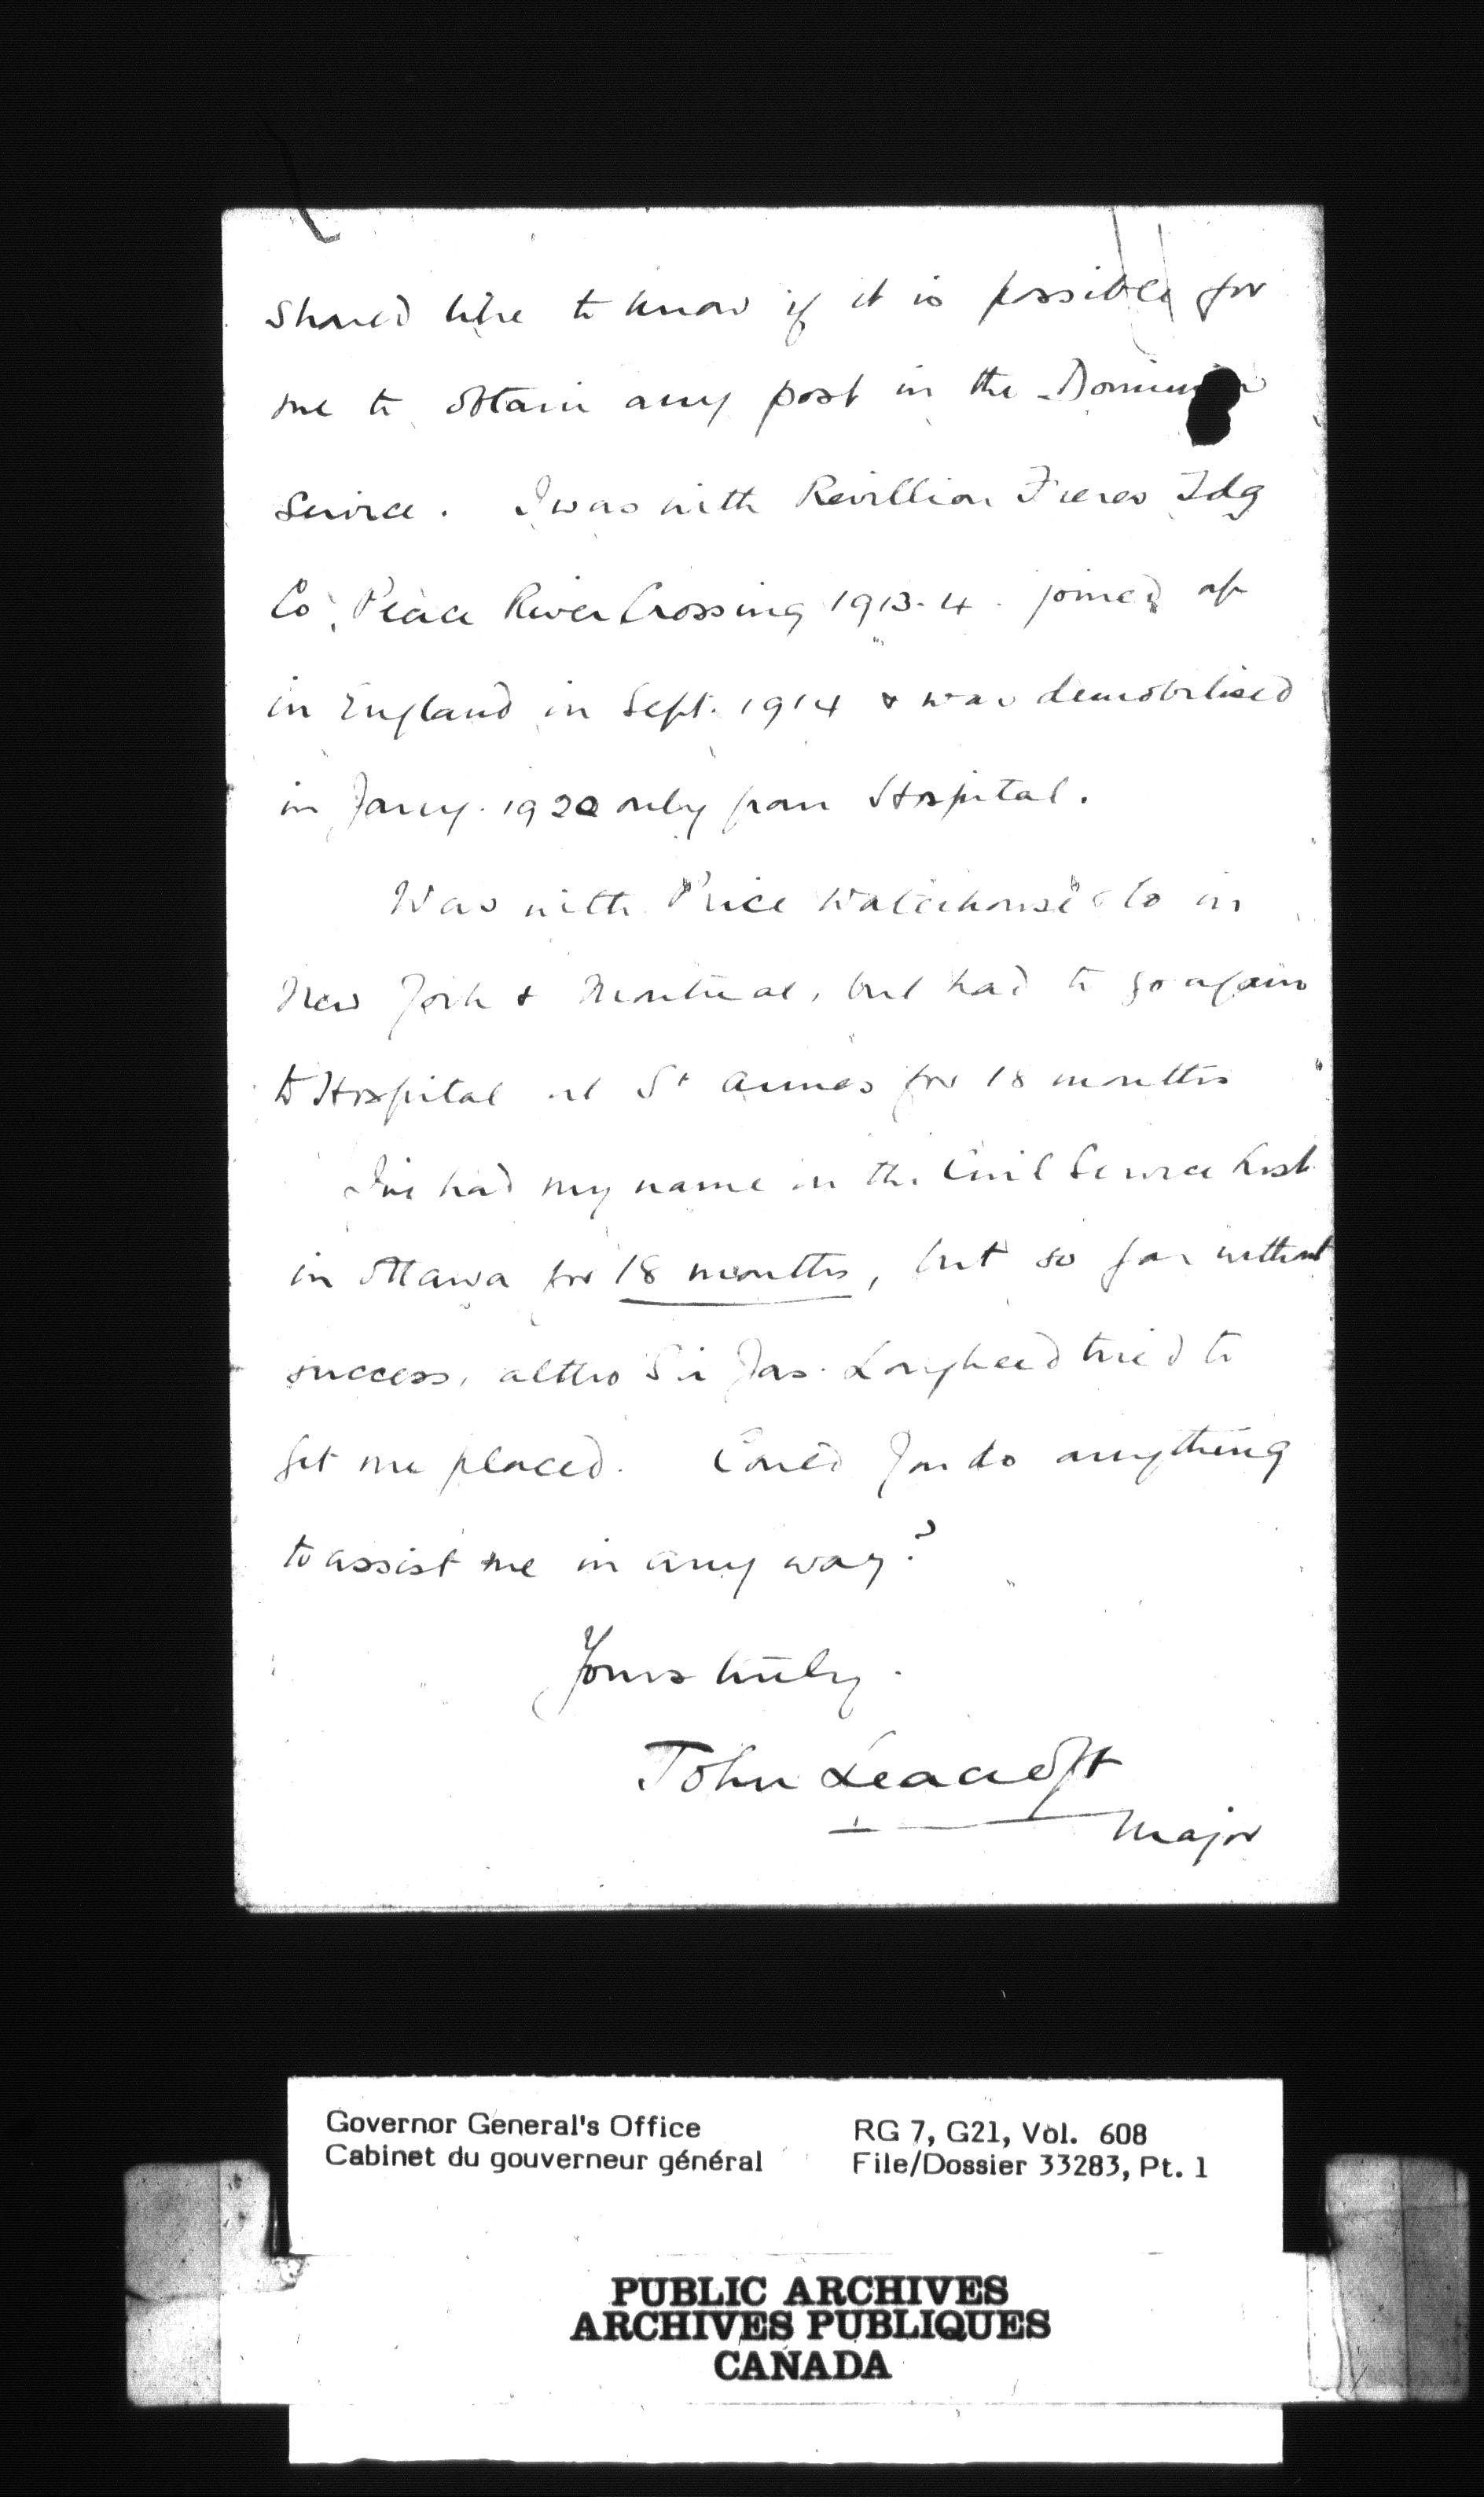 should like to know if it is possible for
me to obtain any post in the Dominion
Service. I was with Revillion Freres Tdg
Co, Peace River Crossing 1913-4. joined up
in England in Sept. 1914 & was demobilised
in Jany. 1920 only from Hospital.
Was with "Price Waterhouse" & Co in
New York & Montreal, but had to go again
to Hospital at St Annes for 18 months
I've had my name in the Civil Service List
in Ottawa for 18 months, but so far without
success, altho Sir Jas. Lougheed tried to
get me placed. Could you do anything
to assist me in any way?
Yours truly.
John Leacroft
Major
Governor General's Office
Cabinet du gouverneur général
RG 7, G21, Vol. 608
File/Dossier 33283, Pt. 1
PUBLIC ARCHIVES
ARCHIVES PUBLIQUES
CANADA